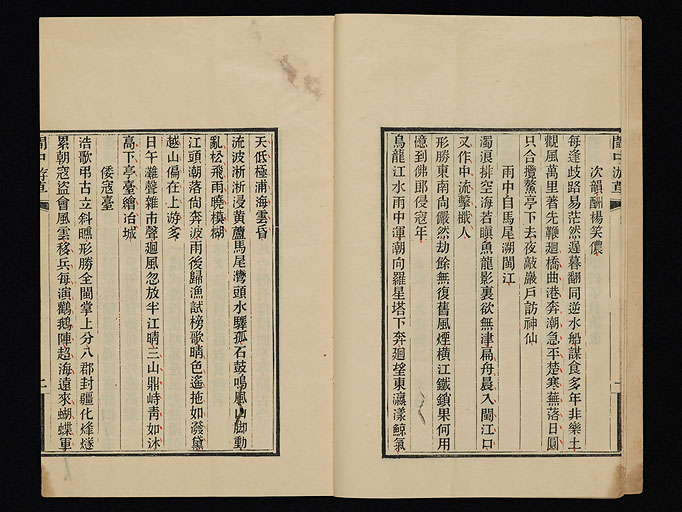 閩中游草
次韻酬楊笑儂
每逢歧路易茫然遲暮翻同逆水船謀食多年非樂土
觀風萬里著先鞭迴橋曲港奔潮急平楚寒蕪落日圓
只合攬鰲亭下去夜敲巖戶訪神仙
雨中自馬尾溯閩江
濁浪排空海若瞋魚龍影裏欲無津扁舟晨入閩江口
又作中流擊檝人
形勝東南向儼然劫餘無復舊風煙橫江鐵鎖果何用
憶到佛郎侵寇年
烏龍江水雨中渾潮向羅星塔下奔迴望東瀛漾鯨氣
天低極浦海雲昏
流波淅淅浸黃蘆馬尾灣頭水驛孤石鼓鳴風山脚動
亂松飛雨曉模糊
江頭潮落尙奔波雨後歸漁試榜歌晴色遙拖如潑黛
越山偏在上游多
日午灘聲雜市聲迴風忽放半江晴三山鼎峙靑如沐
高下亭臺繪冶城
倭寇臺
浩歌弔古立斜曛形勝全閩掌上分八郡封疆化烽燧
累朝寇盜會風雲移兵每演鸛鵝陣超海遠來蝴蝶軍
閩中游草
二